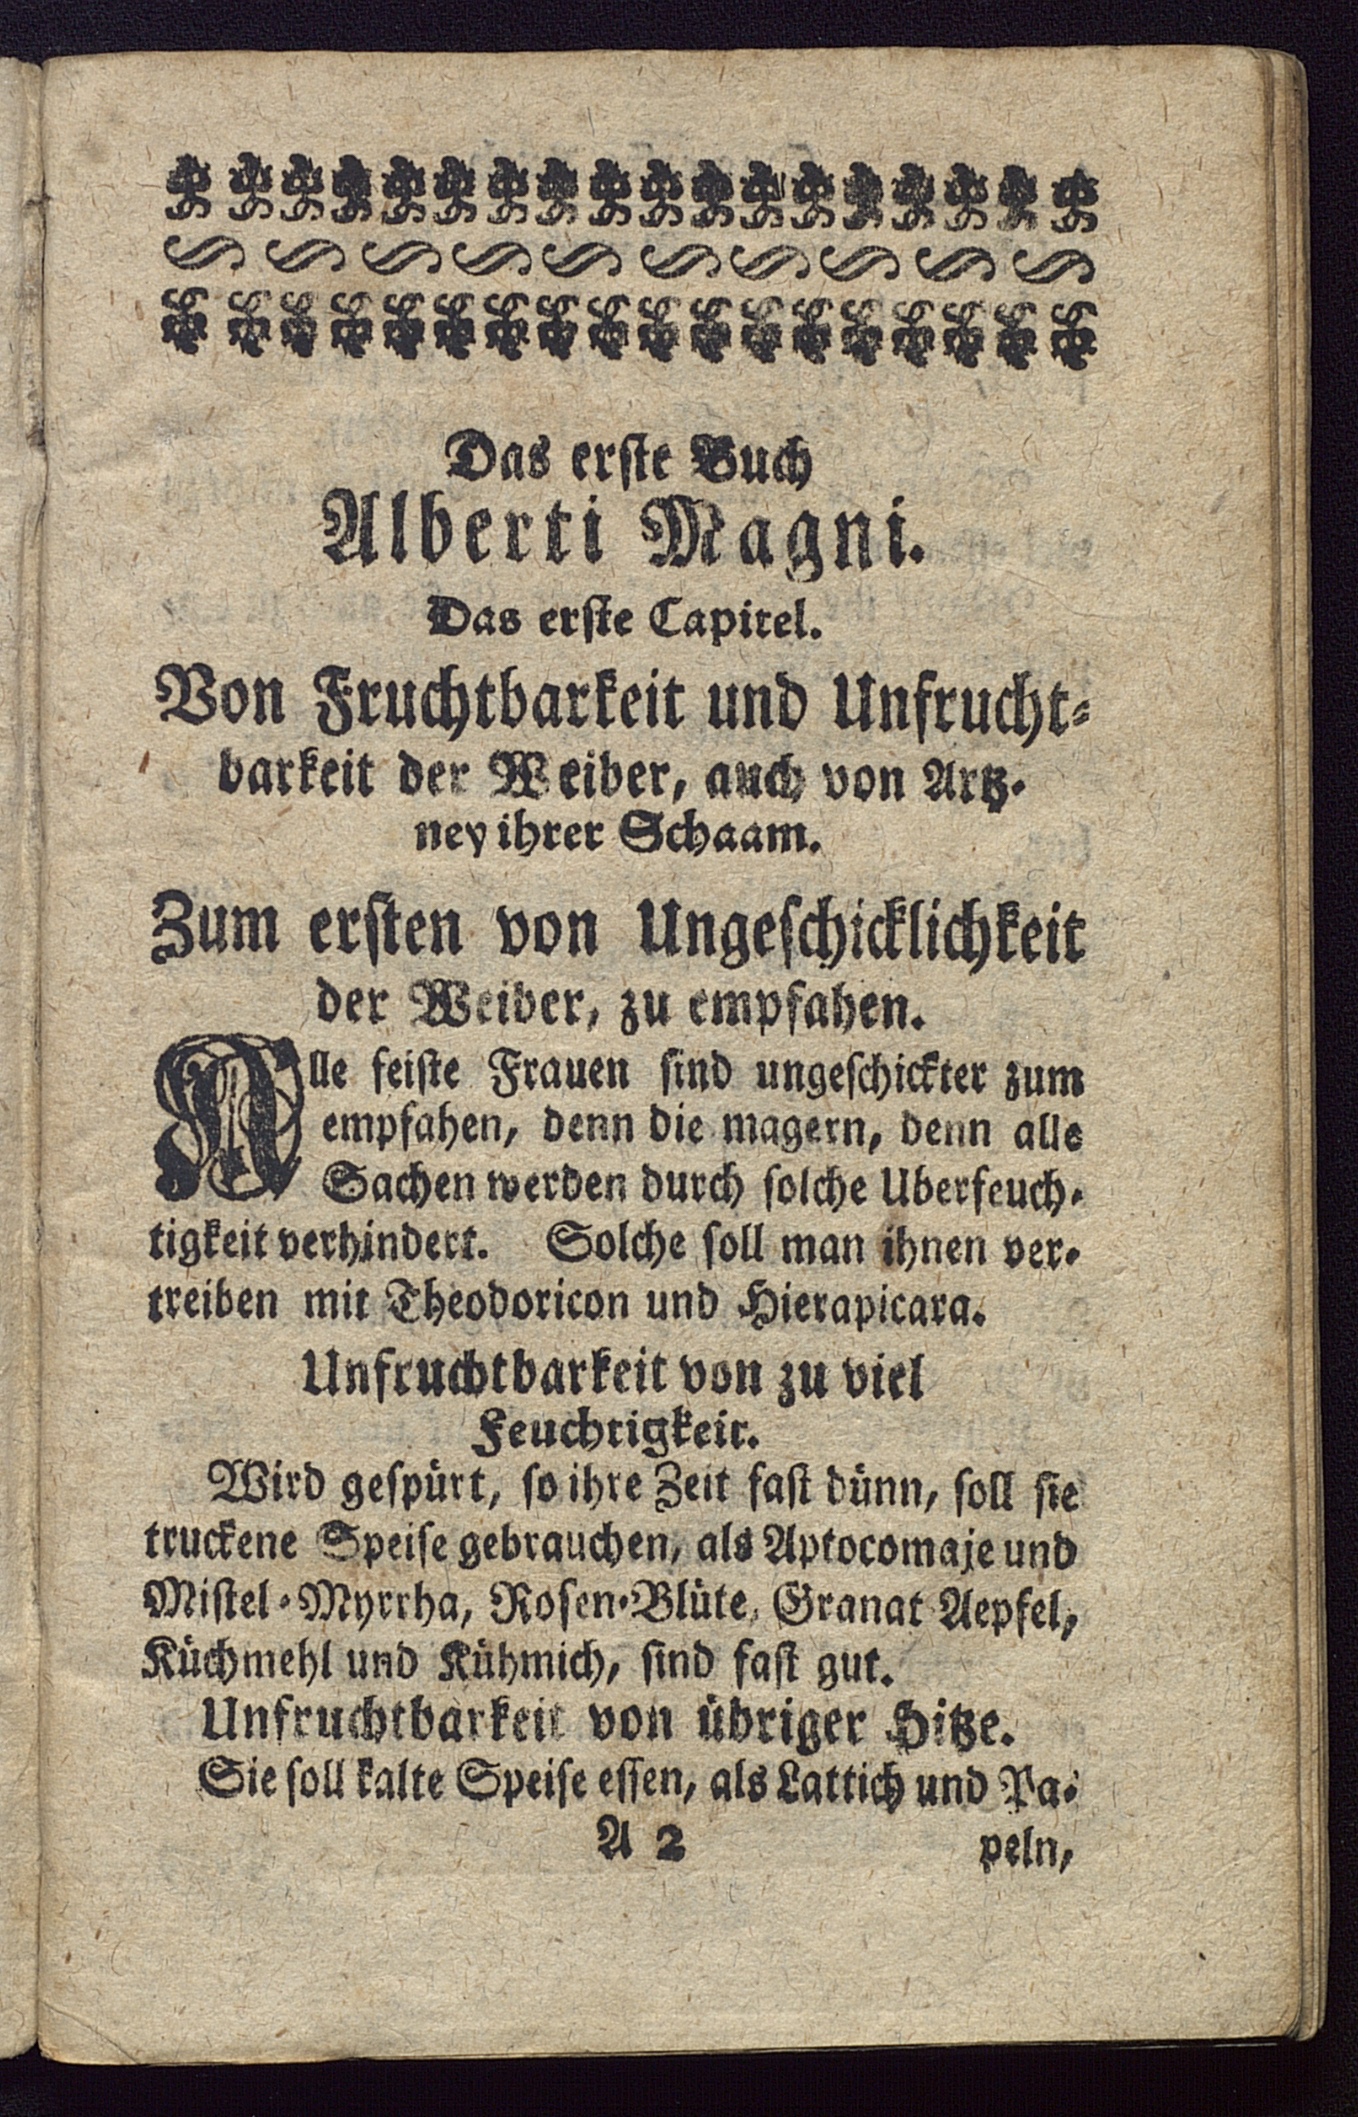 Das erste Buch
Alberti Magni.
Das erste Capitel.
Von Fruchtbarkeit und Unfrucht-
barkeit der Weiber, auch von Artz-
ney ihrer Schaam.
Zum ersten von Ungeschicklichkeit
der Weiber, zu empfahen.
Alle feiste Frauen sind ungeschickter zum
empfahen, denn die magern, denn alle
Sachen werden durch solche Uberfeuch-
tigkeit verhindert. Solche soll man ihnen ver-
treiben mit Theodoricon und Hierapicara.
Unfruchtbarkeit von zu viel
Feuchtigkeit.
Wird gespürt, so ihre Zeit fast dünn, soll sie
truckene Speise gebrauchen, als Aptocomaje und
Mistel-Myrrha, Rosen-Blüte, Granat Aepfel,
Küchmehl und Kühmich, sind fast gut.
Unfruchtbarkeit von übriger Hitze.
Sie soll kalte Speise essen, als Lattich und Pa-
A 2 peln,